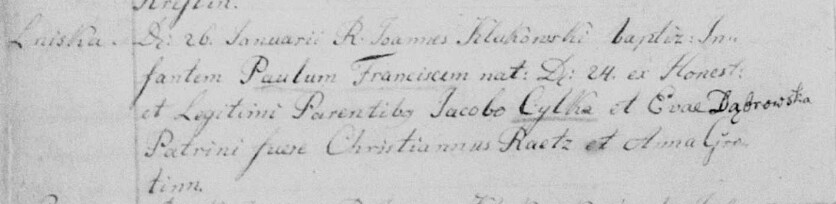 Krystin.
Lniska. D: 26. Januarii R. Joannes Klukowski baptiz: In,,
fantem Paulum Franciscum nat: D: 24. ex Honest:
et Legitimi Parentibꝫ Jacobo Cylka et Evae Dąbrowska
Patrini fuere Christiannus Raetz et Anna Gre,,
tinn.